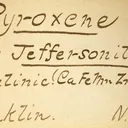 Pyroxene
Jeffersonit
clinic. (Ca Fe Mn Zn
klin. N.